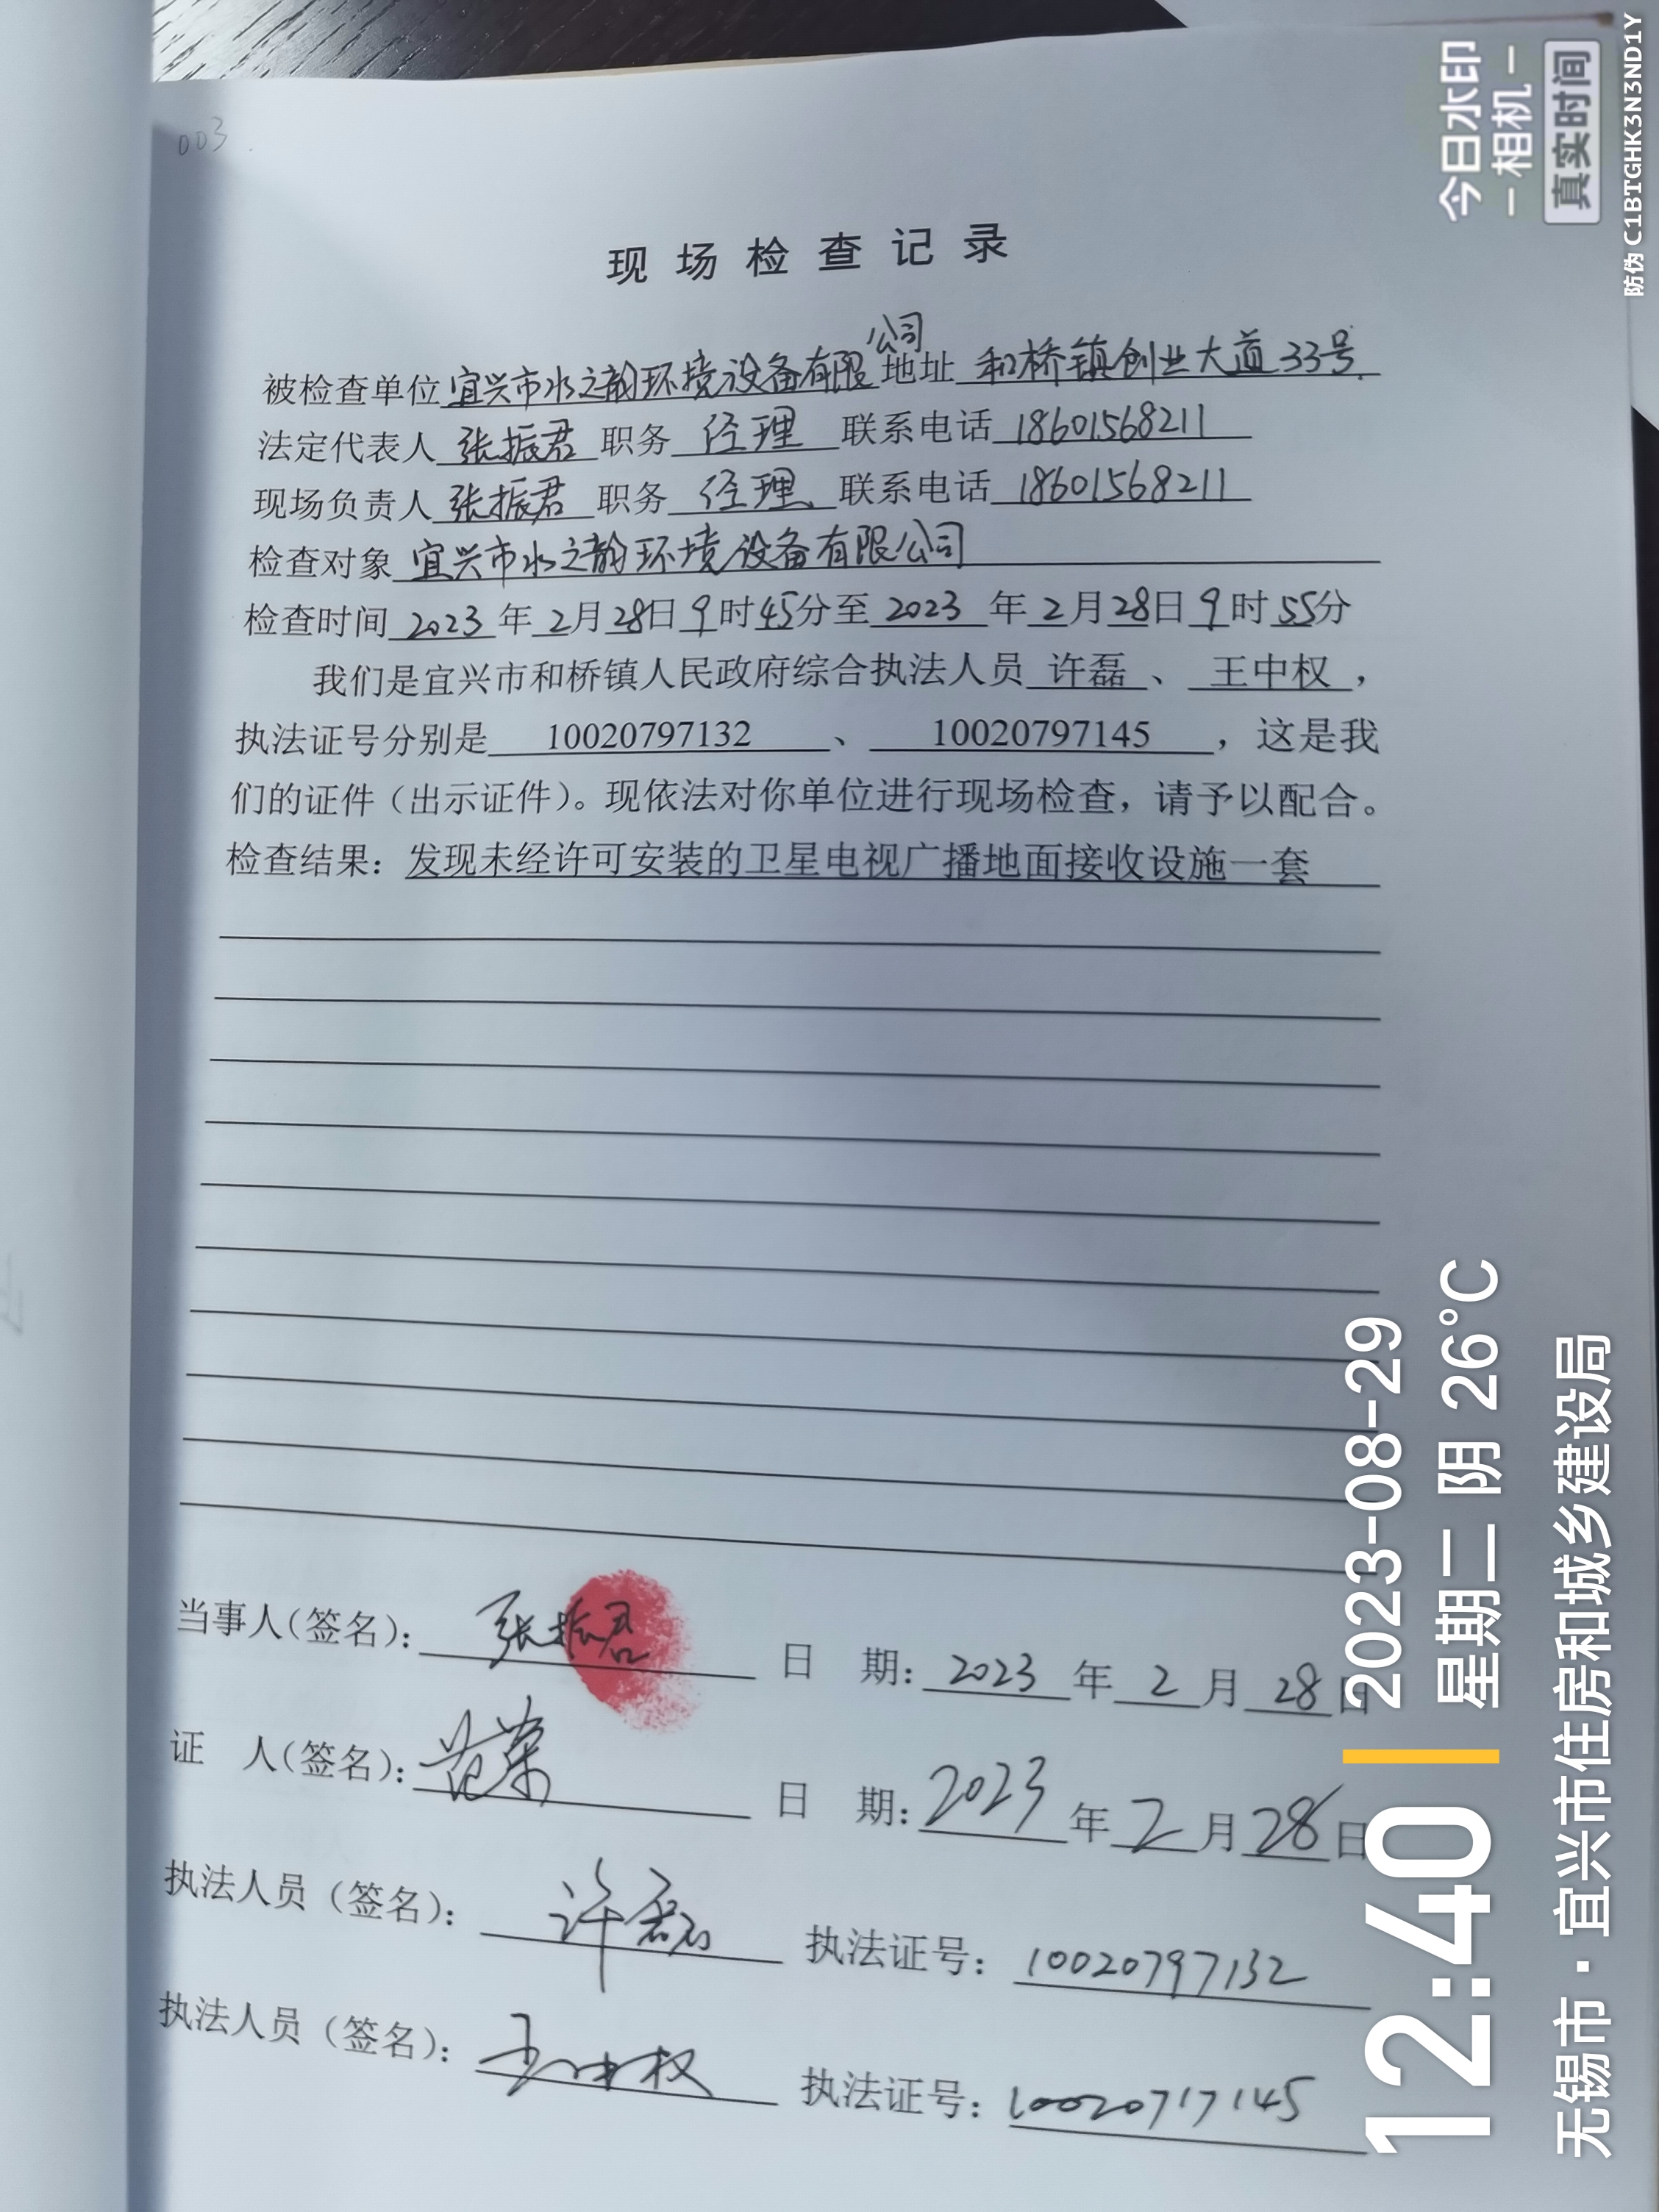 003
现场检查记录
被检查单位宜兴市水之韵环境设备有限公司地址 和桥镇创业大道33号
法定代表人 张振君 职务 经理 联系电话 18601568211
现场负责人 张振君 职务 经理 联系电话 18601568211
检查对象 宜兴市水之韵环境设备有限公司
检查时间 2023 年 2月28日 9 时 45分至 2023 年 2 月 28日 9 时 55分
我们是宜兴市和桥镇人民政府综合执法人员 许磊 、 王中权 ，
执法证号分别是 10020797132 、 10020797145 ，这是我
们的证件（出示证件）。现依法对你单位进行现场检查，请予以配合。
检查结果：发现未经许可安装的卫星电视广播地面接收设施一套
当事人（签名）： 张振君 日 期：2023 年 2 月 28 日
证 人（签名）： 范荣 日 期：2023 年 2 月 28 日
执法人员（签名）： 许磊 执法证号：10020797132
执法人员（签名）： 王中权 执法证号：10020717145
今日水印
-相机-
真实时间
防伪 C1BTGHK3N3ND1Y
12:40
2023-08-29
星期二 阴 26°C
无锡市·宜兴市住房和城乡建设局